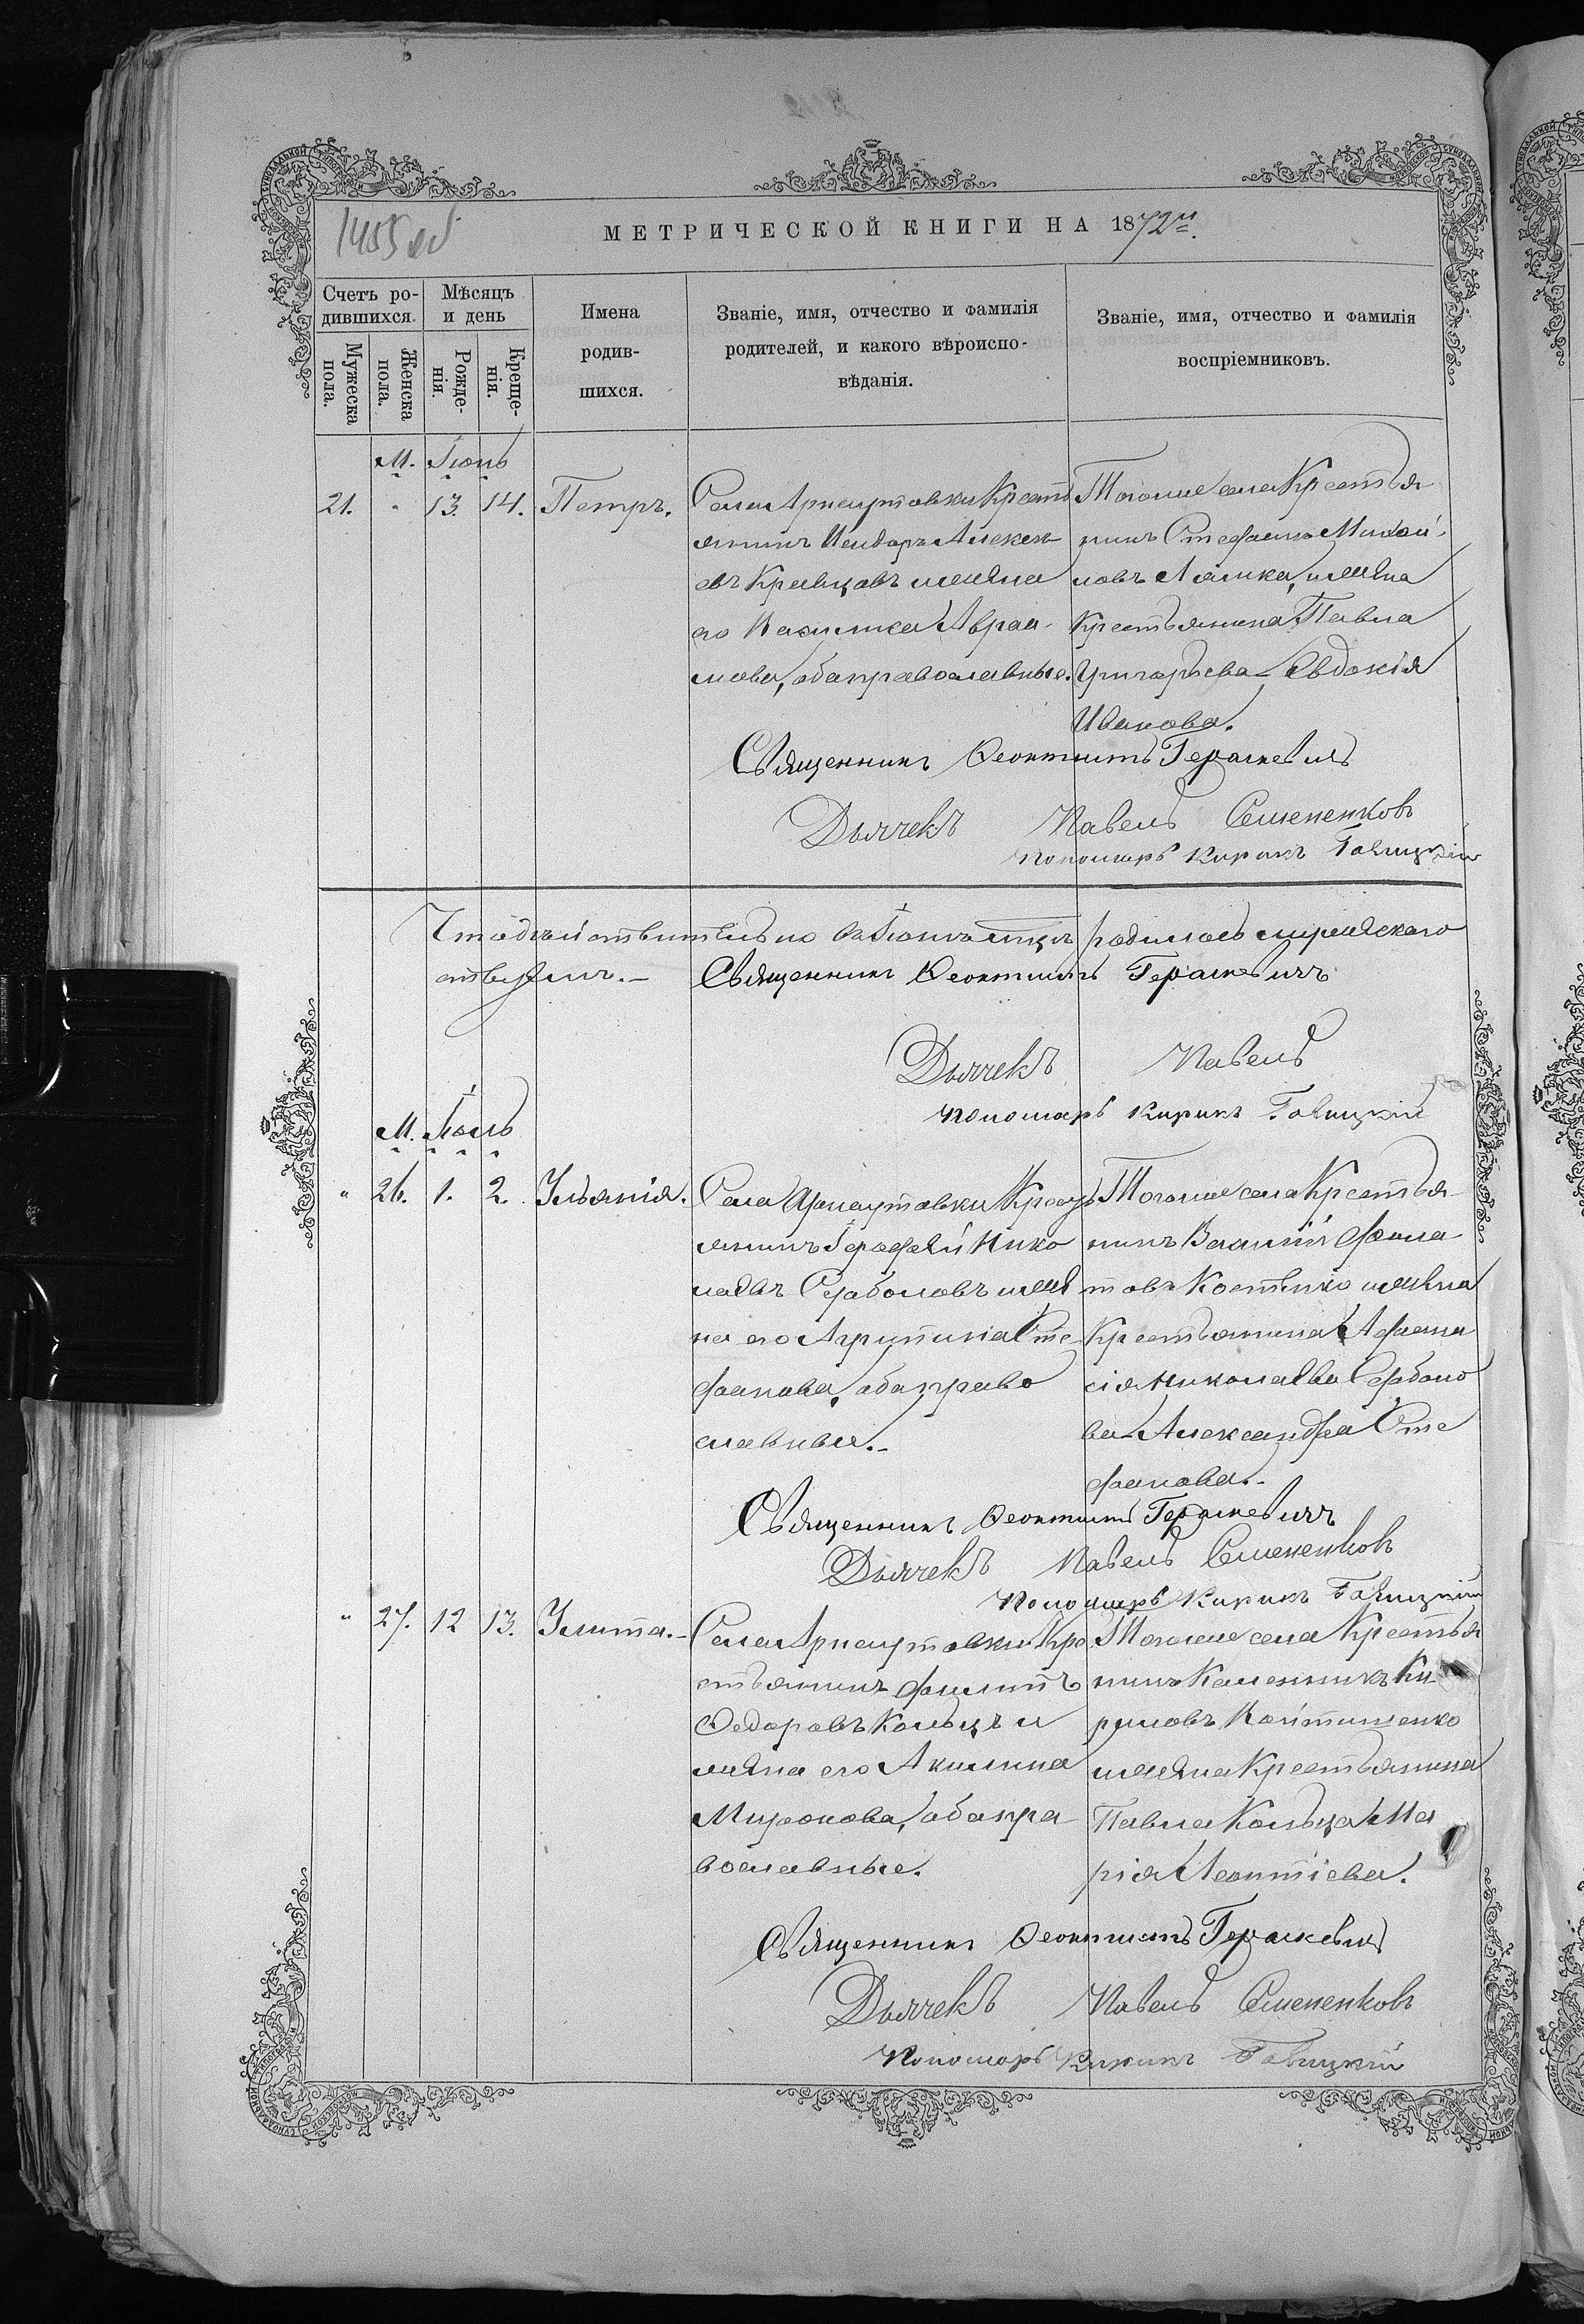 1455 об
МЕТРИЧЕСКОЙ КНИГИ НА 1872й.
Счетъ ро-
дившихся.
Мужеска
пола.
Женска
пола.
Мѣсяцъ
и день
Рожде-
нія.
Креще-
нія.
Имена
родив-
шихся.
Званіе, имя, отчество и фамилія
родителей, и какого вѣроиспо-
вѣданія.
Званіе, имя, отчество и фамилія
воспріемниковъ.
М. Іюнь
21. " 13. 14. Петръ.
Села Арнаутовки Кресть
янинъ Исидоръ Алексѣ
евъ Кравцовъ и жена
его Василиса Авраа-
мова, оба православные.
Тогоже села Крестья
нинъ Стефанъ Михай-
ловъ Лялика, и жена
Крестьянина Павла
Григорьева Евдокія
Иванова.
Священникъ Ѳеоктистъ Гераскевичъ
Дьячекъ Павелъ Семененковъ
Пономарь Кирикъ Галицкій
Что дѣйствительно въ Іюнѣ мѣсяцѣ родилось мужескаго
Священникъ Ѳеоктистъ Гераскевичъ
Дьячекъ Павелъ
Пономарь Кирикъ Галицкій
М. Іюль
" 26. 1. 2. Ульянія.
Села Арнаутовки Кресть
янинъ Іерофей Нико
лаевъ Серболовъ и же
на его Агрипина Сте
фанова, оба право
славные.-
Тогоже села Крестья-
нинъ Василій Фила
товъ Костенко и жена
Крестьянина Афана
сія Николаева Серболо
ва Александра Сте
фанова.-
Священникъ Ѳеоктистъ Гераскевичъ
Дьячекъ Павелъ Семененковъ
Пономарь Кирикъ Галицкій
" 27. 12 13. Улита.-
Села Арнаутовки Кре
стьянинъ Филипъ
Федоровъ Кольцъ и
жена его Акилина
Миронова, оба пра
вославные.
Тогоже села Крестья
нинъ Калинникъ Ки
риловъ Войтишенко
и жена Крестьянина
Павла Кольца Ма
рія Леонтіева.
Священникъ Ѳеоктистъ Гераскевичъ
Дьячекъ Павелъ Семененковъ
Пономарь Кирикъ Галицкій